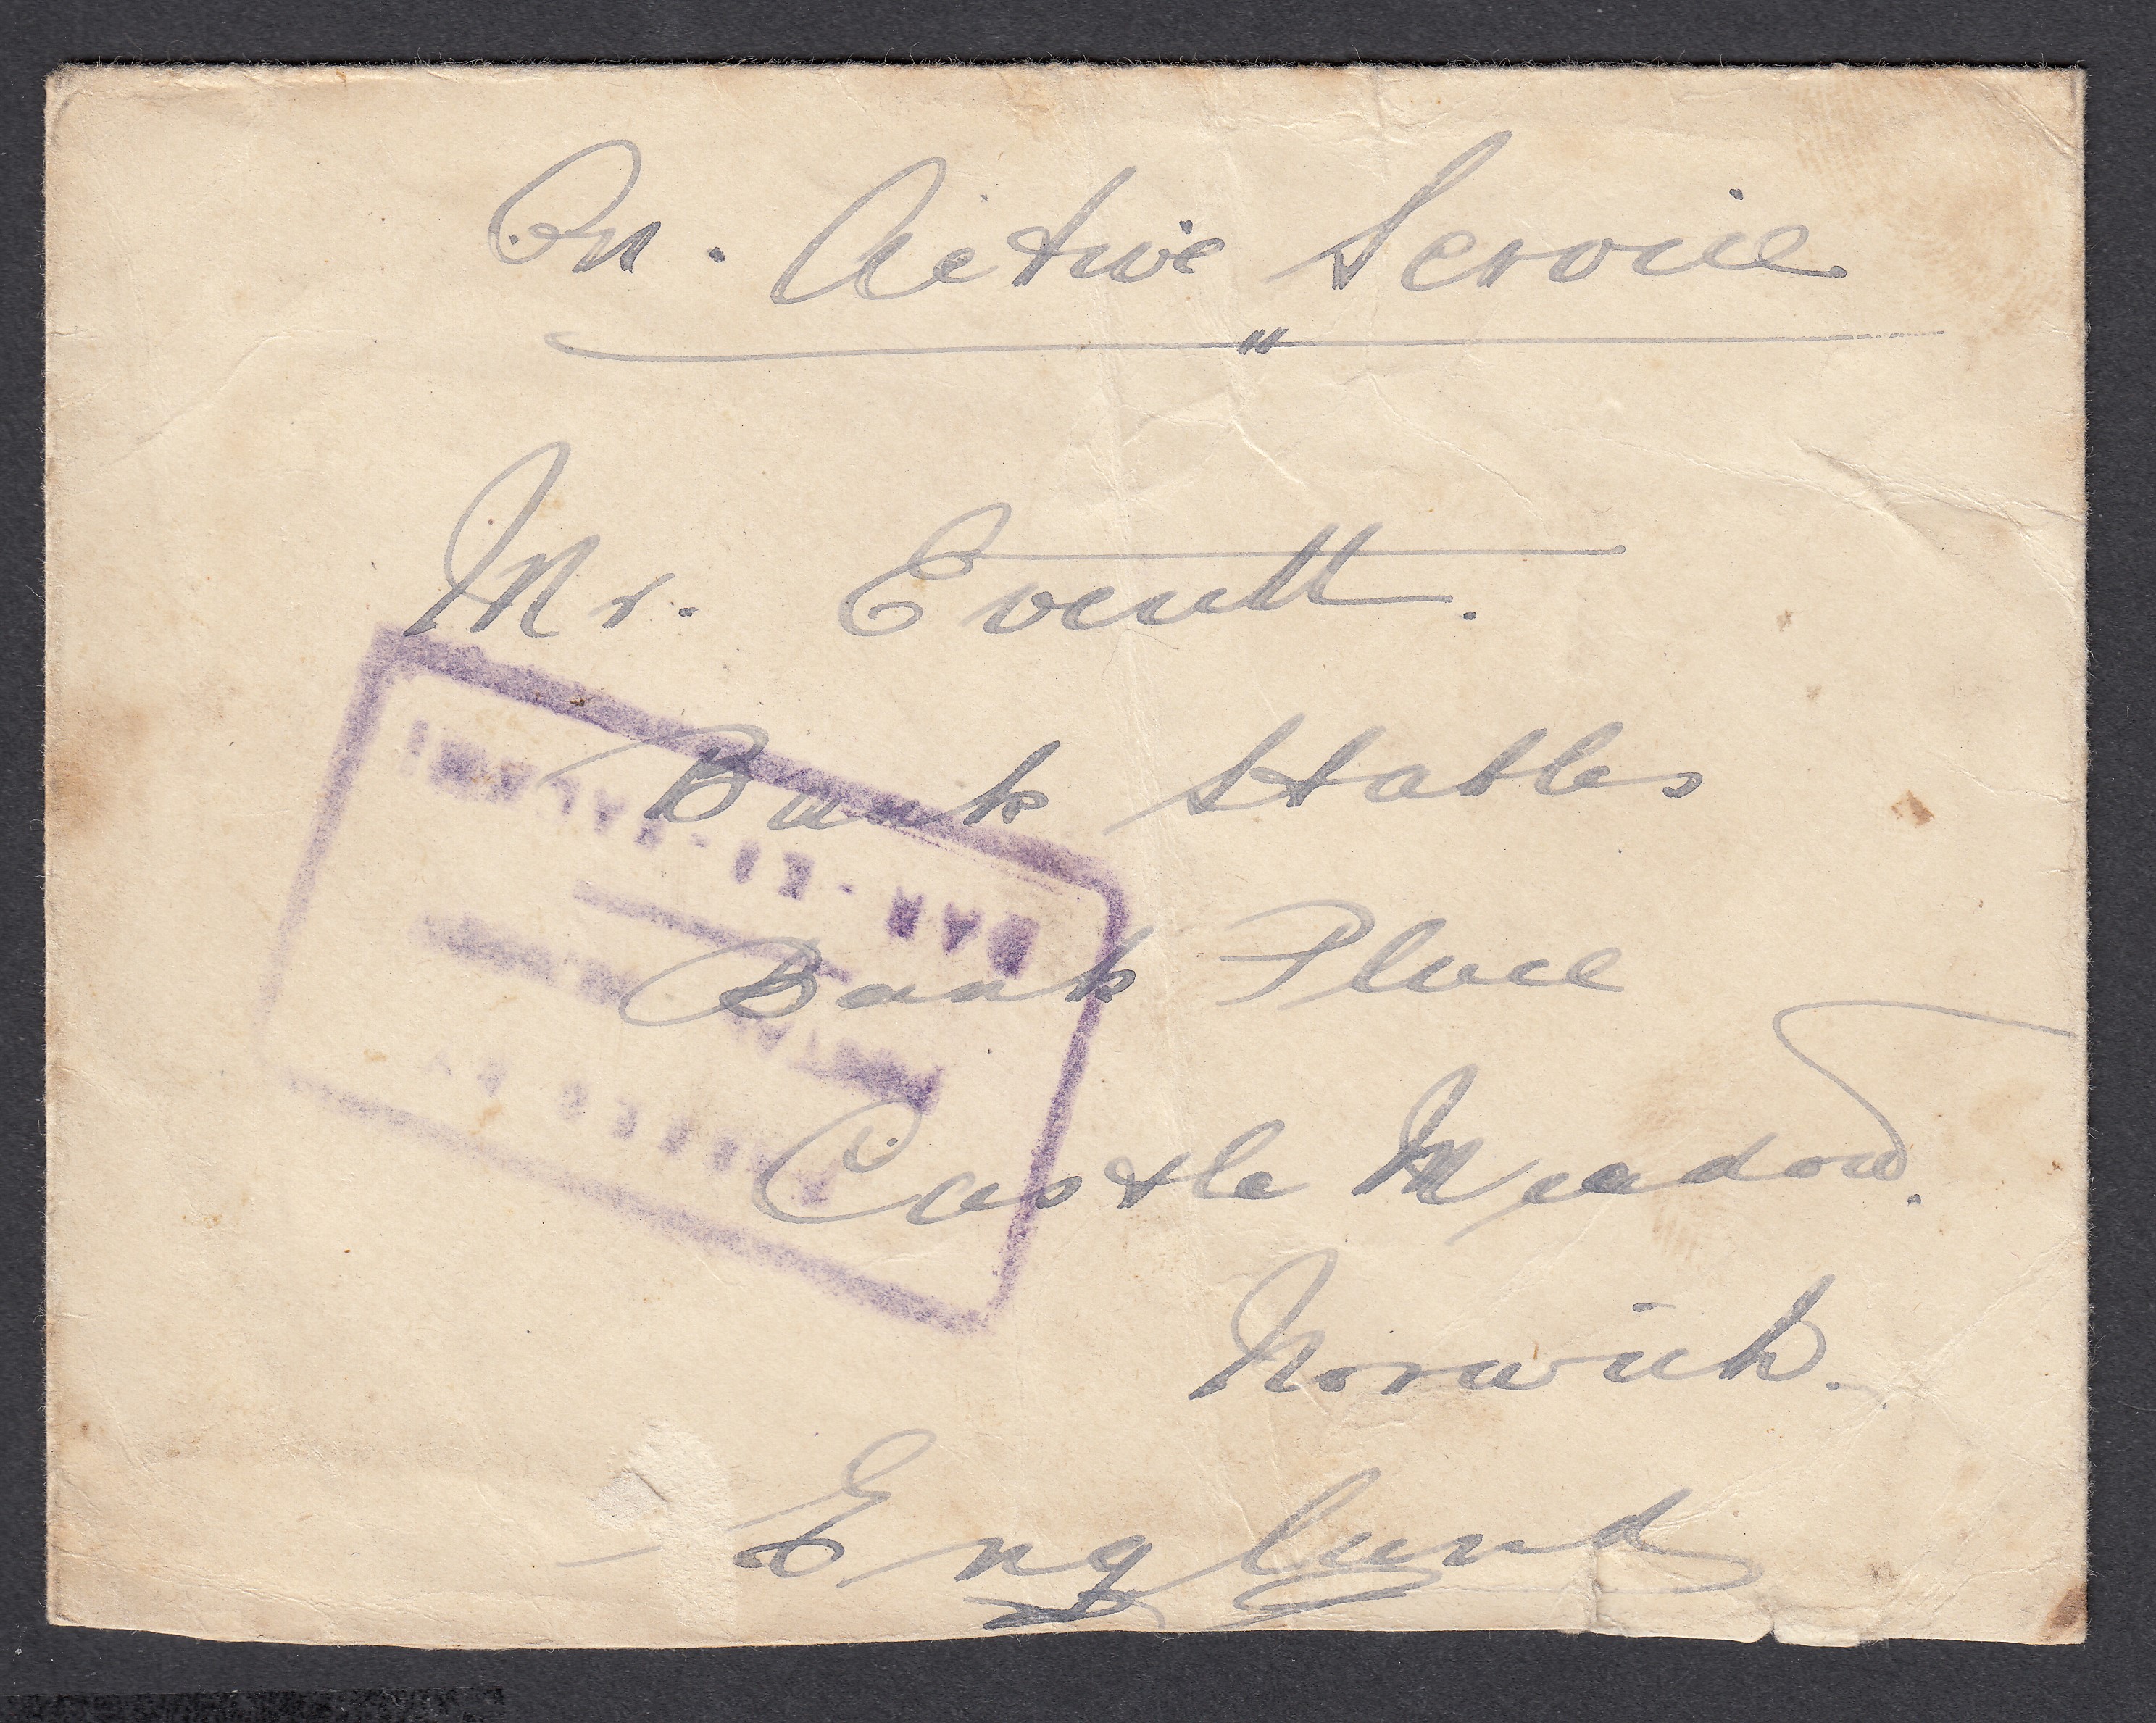 On. Active Service
Mr. Everett.
Bank Stables
Bank Place
Castle Meadow.
Norwich.
England
PASSED BY
DAR-ES-SALAAM